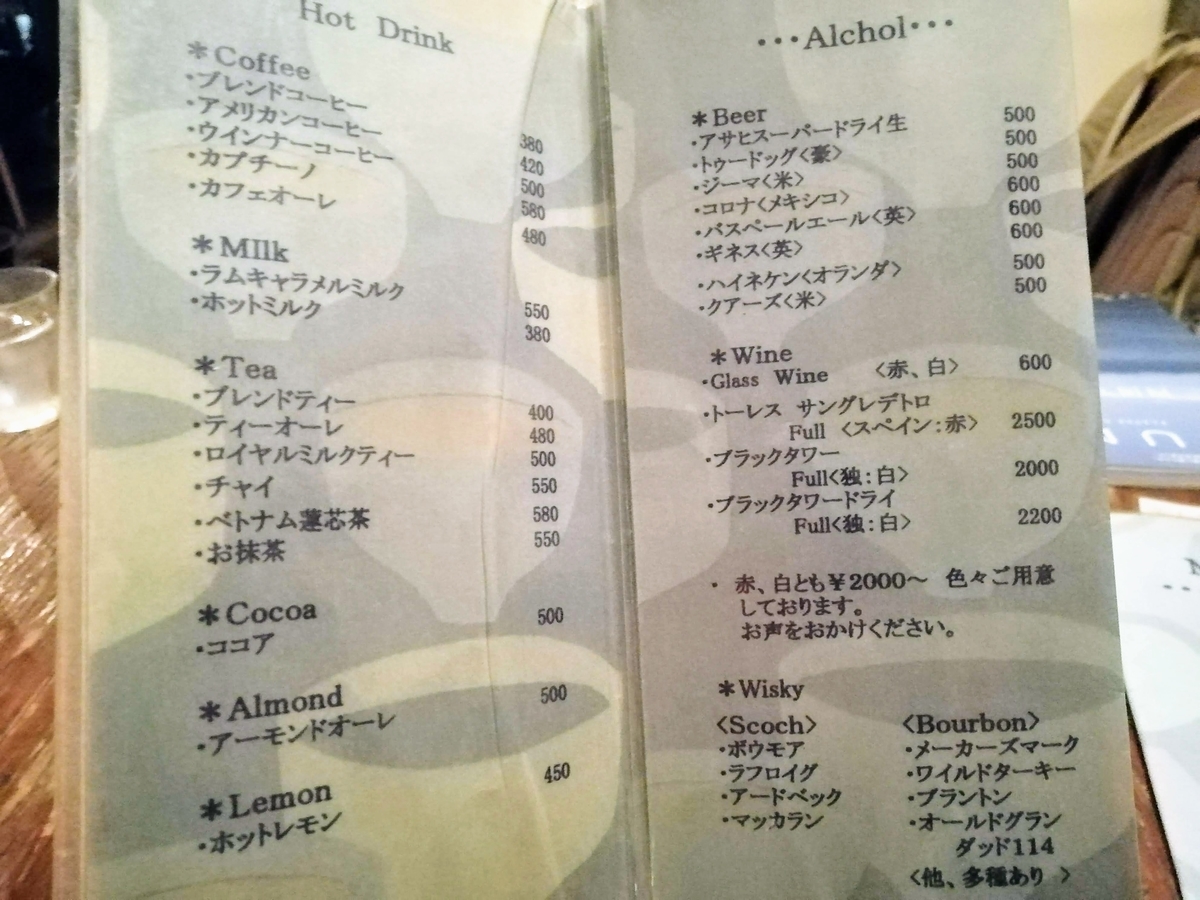 Hot Drink
＊Coffee
・ブレンドコーヒー 380
・アメリカンコーヒー 420
・ウインナーコーヒー 500
・カプチーノ 580
・カフェオーレ 480
＊MIlk
・ラムキャラメルミルク 550
・ホットミルク 380
＊Tea
・ブレンドティー 400
・ティーオーレ 480
・ロイヤルミルクティー 500
・チャイ 550
・ベトナム蓮芯茶 580
・お抹茶 550
＊Cocoa
・ココア 500
＊Almond
・アーモンドオーレ 500
＊Lemon
・ホットレモン 450
・・・Alchol・・・
＊Beer
・アサヒスーパードライ生 500
・トゥードッグ〈豪〉 500
・ジーマ〈米〉 500
・コロナ〈メキシコ〉 600
・バスペールエール〈英〉 600
・ギネス〈英〉 600
・ハイネケン〈オランダ〉 500
・クアーズ〈米〉 500
＊Wine
・Glass Wine 〈赤、白〉 600
・トーレス サングレデトロ
Full 〈スペイン：赤〉 2500
・ブラックタワー
Full〈独：白〉 2000
・ブラックタワードライ
Full〈独：白〉 2200
・ 赤、白とも￥2000～ 色々ご用意
しております。
お声をおかけください。
＊Wisky
〈Scoch〉
・ボウモア
・ラフロイグ
・アードベック
・マッカラン
〈Bourbon〉
・メーカーズマーク
・ワイルドターキー
・ブラントン
・オールドグラン
ダッド114
〈他、多種あり 〉